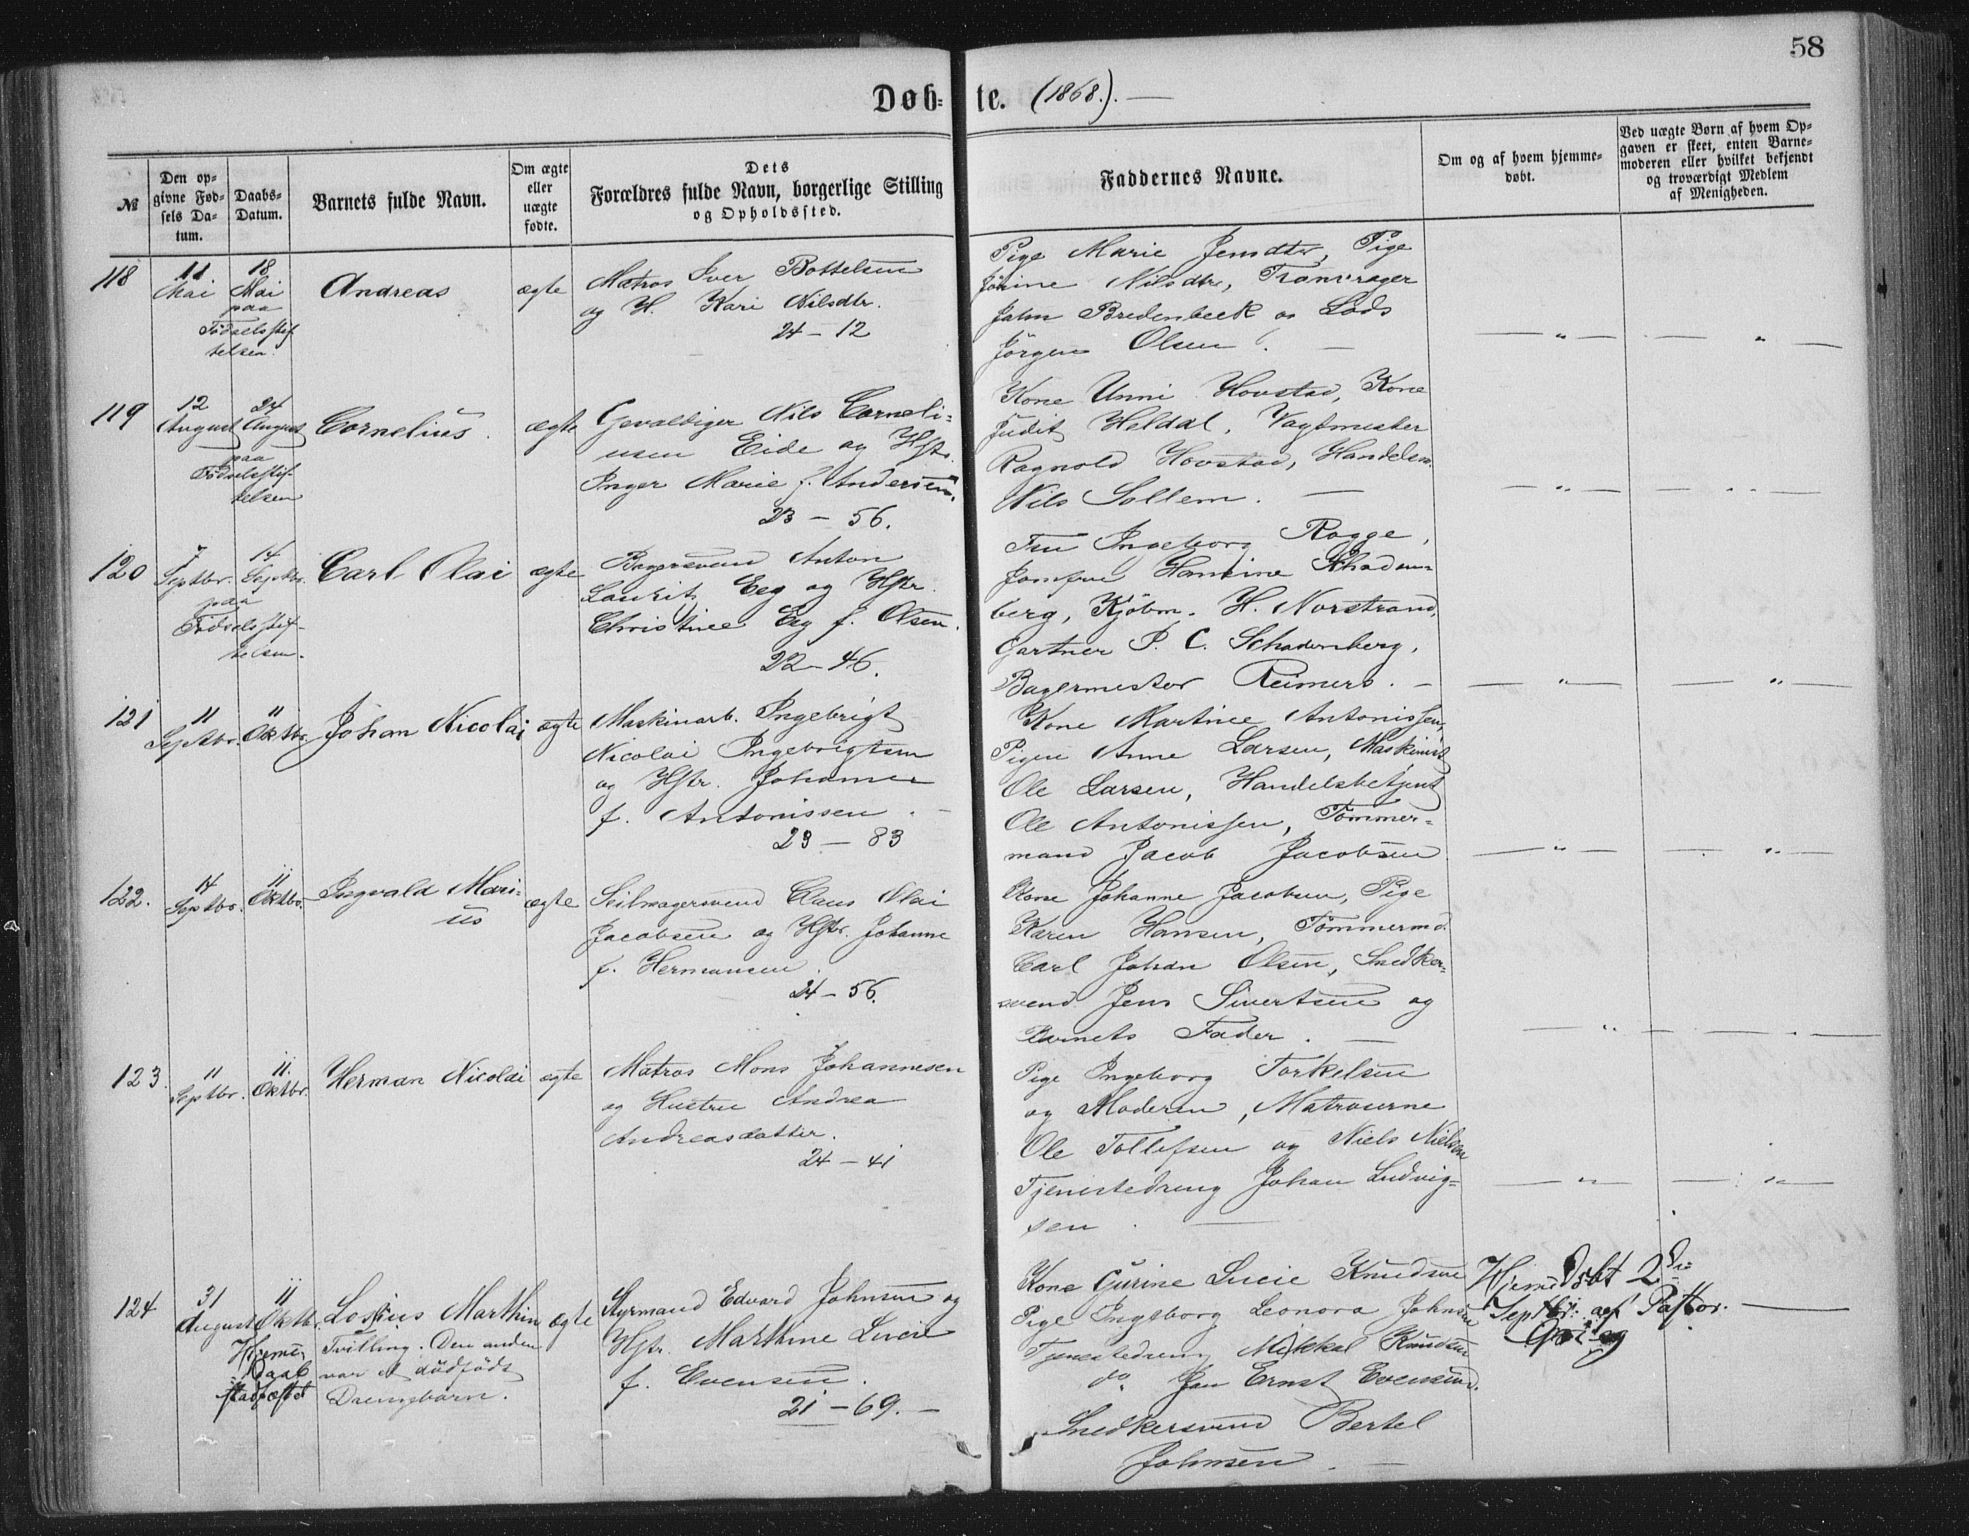 58
Døb-te. (1868.). —
№
Den opgivne Fødsels Datum.
Daabs-Datum.
Barnets fulde Navn.
Om ægte eller uægte fødte.
Dets Forældres fulde Navn, borgerlige Stilling og Opholdssted.
Faddernes Navne.
Om og af hvem hjemmedøbt.
Ved uægte Børn af hvem Opgaven er skeet, enten Barnemoderen eller hvilket bekjendt og troværdigt Medlem af Menigheden.
118
11 Mai
18 Mai
paa
Fødselsstif
telsen.
Andreas
ægte
Matros Iver Bottelsen
og H. Kari Nilsdtr.
24 – 12
Pige Marie Jensdtr, Pige
Jonine Nilsdtr,
Jahn Bredenbeck og Lods
Jörgen Olsen. —
— " —
— " —
119
12 August
24 August
paa
Fødselsstif
telsen
Cornelius.
ægte
Gevaldiger Nils Corneli-
usen Eide og Hstr.
Inger Marie f. Andersen.
23 – 56.
Kone Unni Hovstad, Kone
Judit Heldal, Vagtmester
Ragnold Hovstad, Handelsm.
Nils Sollem. —
— " —
— " —
120
7 Septbr.
14 Septbr.
paa
Fødselsstif-
telsen.
Carl Olai
ægte
Bagersvend Anton
Laurits Eeg og Hstr.
Christine Eeg f. Olsen.
22 – 46.
Fru Ingeborg Rogge,
Jomfru Hansine Schaden-
berg, Kjöbm. H. Norstrand,
Gartner P. C. Schadenberg,
Bagermester Reimers. —
— " —
— " —
121
11 Septbr.
11 Oktbr.
Johan Nicolai
ægte
Maskinarb. Ingebrigt
Nicolai Ingebrigtsen
og Hstr. Johanne
f. Antonissen.
23 – 83
Kone Martine Antonissen,
Pigen Anne Larsen, Maskinist
Ole Larsen, Handelsbetjent
Ole Antonissen, Tömmer-
mand Jacob Jacobsen
— " —
— " —
122.
14 Septbr.
11 Oktbr.
Ingvald Mari-
us
ægte
Seilmagersvend Claus Olai
Jacobsen og Hstr. Johanne
f. Hermansen.
24 – 56.
Kone Johanne Jacobsen, Pige
Karen Hansen, Tömmermd.
Carl Johan Olsen, Snedker-
svend Jens Sivertsen og
Barnets Fader. —
— " —
— " —
123.
11 Septbr.
11. Oktbr.
Herman Nicolai
ægte
Matros Mons Johannesen
og Hustru Andrea
Andreasdatter.
24 – 41
Pige Ingeborg Torkelsen
og Moderen, Matroserne
Ole Tollefsen og Niels Nielsen
Tjenestedreng Johan Ludvig-
sen. —
— " —
— " —
124
31 August
11 Oktbr.
Hjemme
Daab
stadfæstet
Marthin
Tvilling. Den anden
var et dødfødt
Drengebarn.
ægte
Styrmand Edvard Johnsen og
Hstr. Marthine Lucie
f. Evensen.
21 – 69. –
Kone Gurine Lucie Knudsen
Pige Ingeborg Leonora Johnsen
Tjenestedreng Mikkal Knudsen
do Jan Ernst Evensen.
Snedkersvend Bertel
Johnsen. —
Hjemmedöbt 2den
Septbr. af Pastor. —